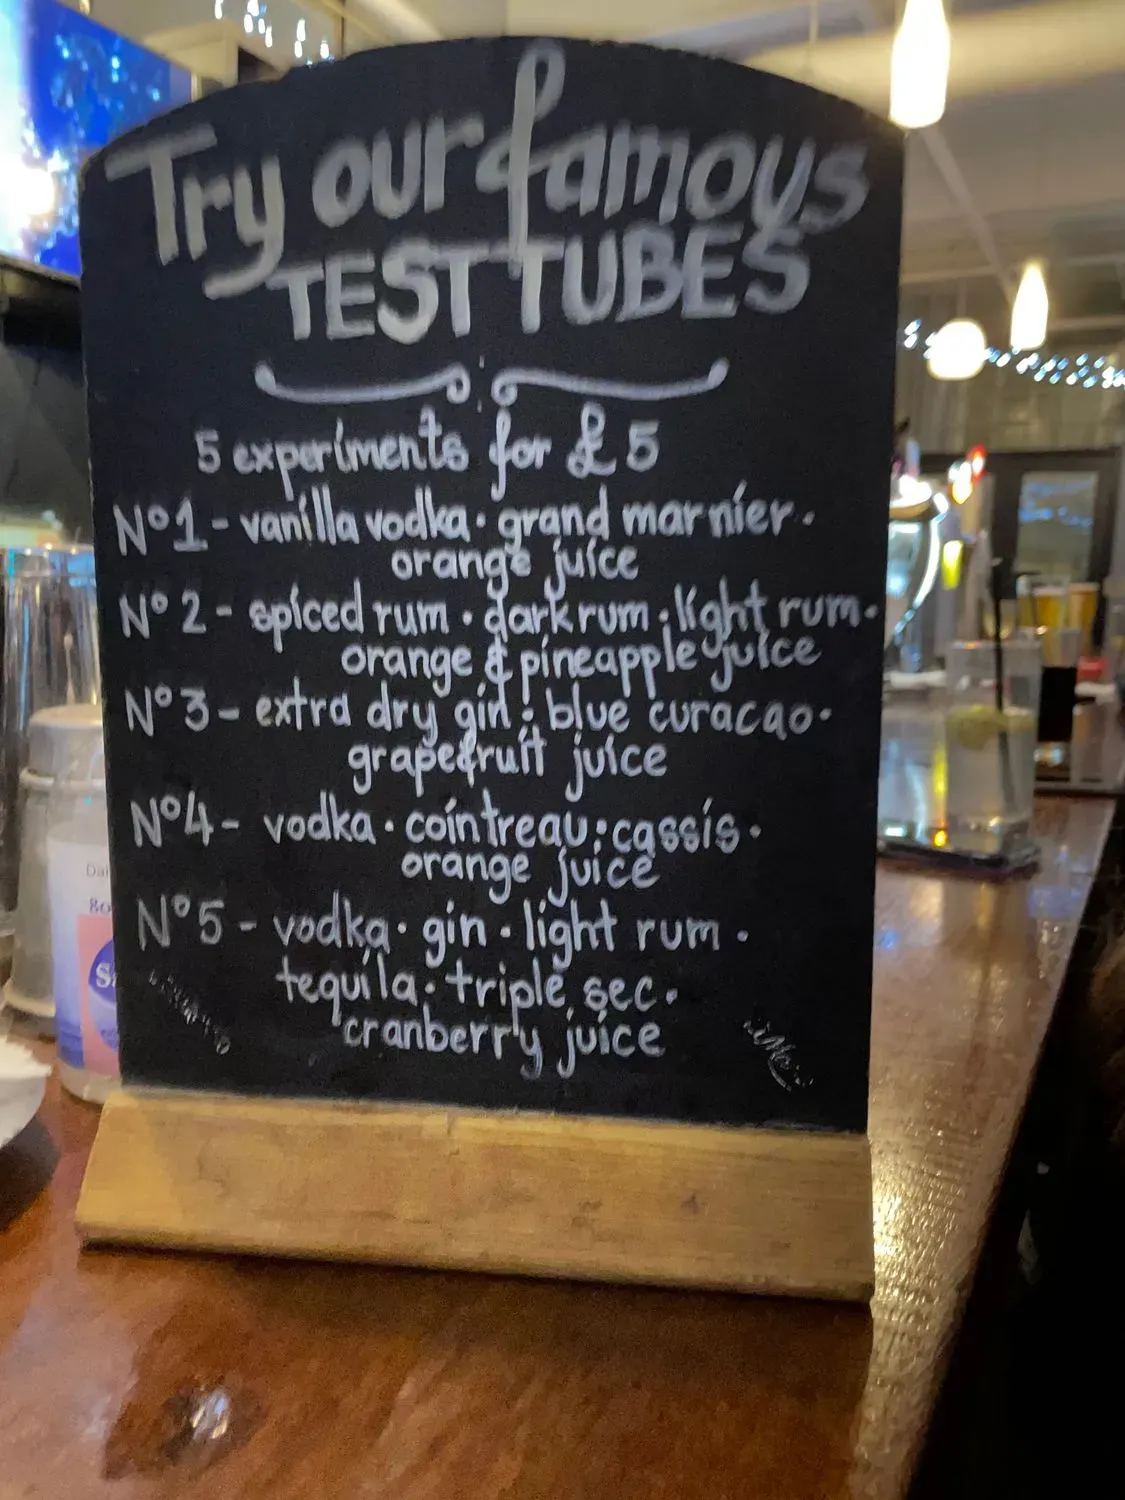 Try our famous
TEST TUBES
5 experiments for £5
Nº1 - vanilla vodka · grand marnier ·
orange juice
Nº2 - spiced rum · dark rum · light rum ·
orange & pineapple juice
Nº3 - extra dry gin · blue curacao ·
grapefruit juice
Nº4 - vodka · cointreau · cassis ·
orange juice
Nº5 - vodka · gin · light rum ·
tequila · triple sec ·
cranberry juice